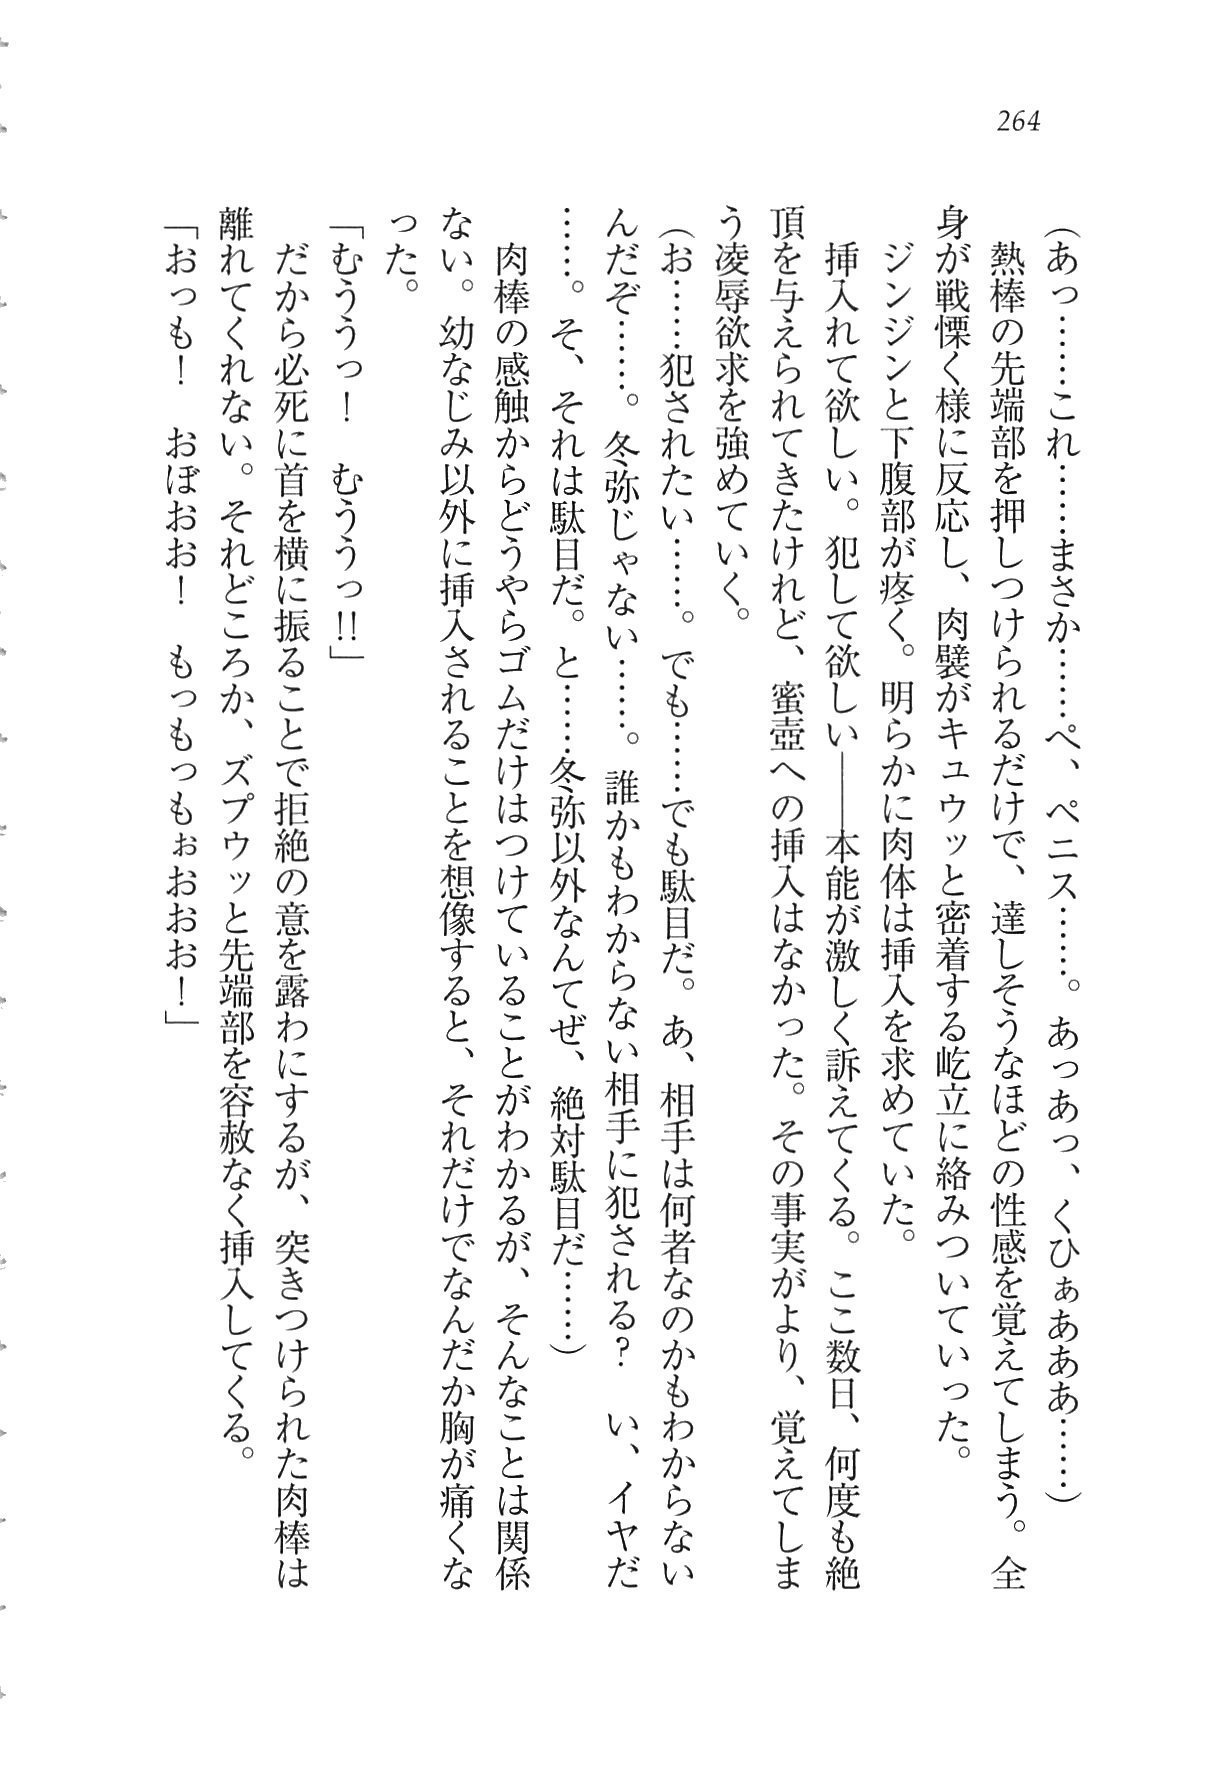 264
(あっ……これ……まさか……ぺ、ペニス……。あっあっ、くひぁあああ……)
　熱棒の先端部を押しつけられるだけで、達しそうなほどの性感を覚えてしまう。全
身が戦慄く様に反応し、肉襞がキュウッと密着する屹立に絡みついていった。
　ジンジンと下腹部が疼く。明らかに肉体は挿入を求めていた。
　挿入れて欲しい。犯して欲しい――本能が激しく訴えてくる。ここ数日、何度も絶
頂を与えられてきたけれど、蜜壺への挿入はなかった。その事実がより、覚えてしま
う凌辱欲求を強めていく。
(お……犯されたい……。でも……でも駄目だ。あ、相手は何者なのかもわからない
んだぞ……。冬弥じゃない……。誰かもわからない相手に犯される？　い、イヤだ
……。そ、それは駄目だ。と……冬弥以外なんてぜ、絶対駄目だ……)
　肉棒の感触からどうやらゴムだけはつけていることがわかるが、そんなことは関係
ない。幼なじみ以外に挿入されることを想像すると、それだけでなんだか胸が痛くな
った。
「むううっ！　むううっ!!」
　だから必死に首を横に振ることで拒絶の意を露わにするが、突きつけられた肉棒は
離れてくれない。それどころか、ズプウッと先端部を容赦なく挿入してくる。
「おっも！　おぼおお！　もっもっもぉおおお！」